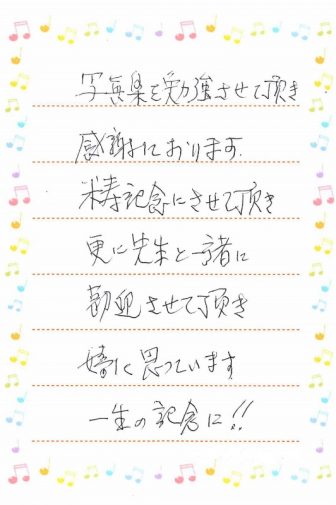 写真集を勉強させて頂き
感謝しております.
米寿記念にさせて頂き
更に先生と一緒に
歓迎させて頂き
嬉しく思っています
一生の記念に!!